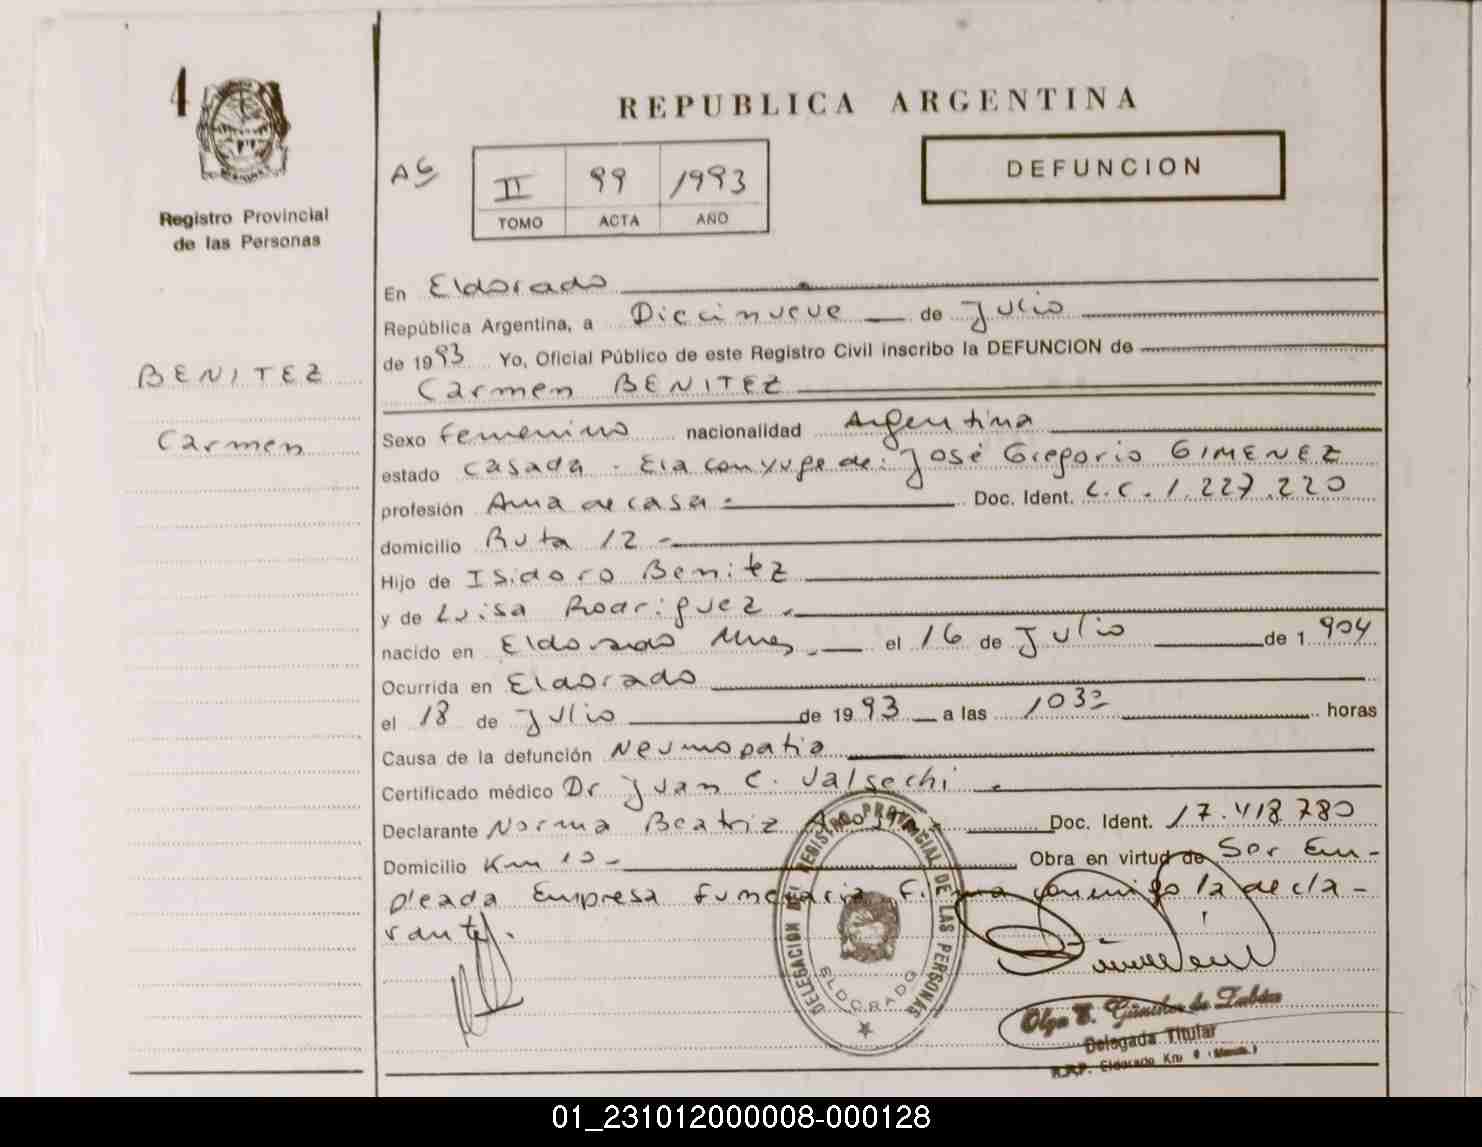 4
REPUBLICA ARGENTINA
DEFUNCION
II 99 1993
TOMO ACTA AÑO
Registro Provincial
de las Personas
BENITEZ
Carmen
En Eldorado
República Argentina, a Diecinueve de Julio
de 1993 Yo, Oficial Público de este Registro Civil inscribo la DEFUNCION de
Carmen BENITEZ
Sexo Femenino nacionalidad Argentina
estado Casada - Era conyuge de: José Gregorio GIMENEZ
profesión Ama de casa - Doc. Ident. L.C. 1.227.220
domicilio Ruta 12 -
Hijo de Isidoro Benitez
y de Luisa Rodriguez.
nacido en Eldorado Mnes. el 16 de Julio de 1.904
Ocurrida en Eldorado
el 18 de Julio de 1993 a las 1030 horas
Causa de la defunción Neumopatia
Certificado médico Dr Juan C. Valsechi.
Declarante Norma Beatriz Doc. Ident. 17.418.780
Domicilio Km 10 - Obra en virtud de Ser Em-
pleada Empresa Funeraria Firma conmigo la decla-
rante.
DELEGACION DEL REGISTRO PROVINCIAL DE LAS PERSONAS
ELDORADO
Olga de Zabán
Delegada Titular
R.P.P. Eldorado Km
01_231012000008-000128